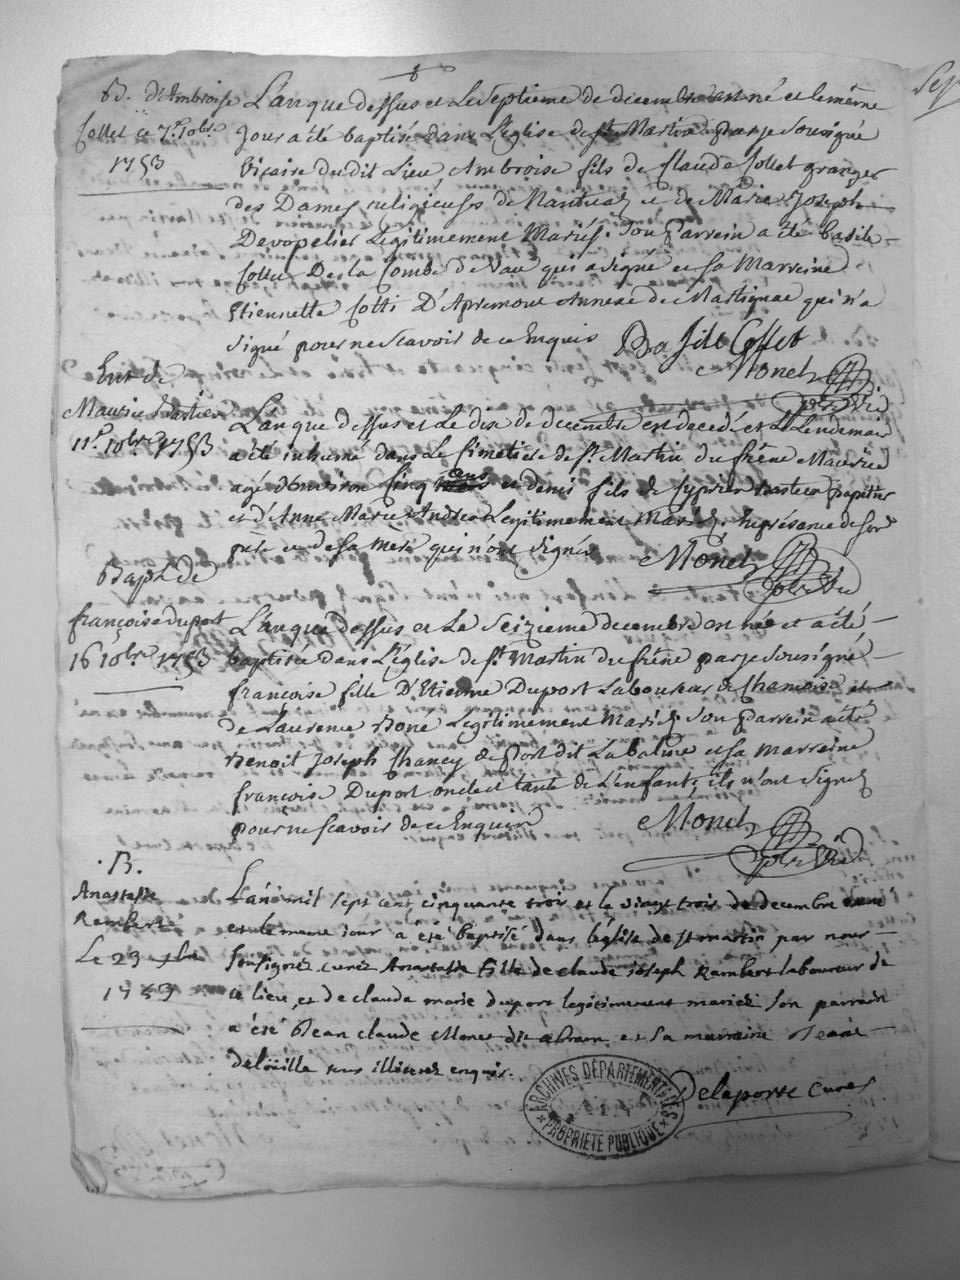 B. d'Ambroise
Collet ce 7e 10bre
1753
L'an que dessus et Le Septieme de decembre est né et le même
Jour a été baptisé dans L'église de St Martin par je Sousigné
Vicaire du dit Lieu Ambroise fils de Claude Collet granger
des Dames religieuses de Nantua et de Marie Joseph
Devopelier Legitimement Mariés. Son Parrein a été basile
Collet De la Combe de Vau qui a signé et sa Marreine
Etiennette Cotti D'Apremont Annexe de Martignat qui n'a
Signé pour ne Scavoir de ce Enquis
Basile Collet
Monet
vicaire
Ent. de
Maurice
11e 10bre 1753
L'an que dessus et Le dix de decembre est decedé et Le Lendemain
a été inhumé dans Le Cimetiere de St Martin du frêne Maurice
agé d'environ Cinq ans et demis fils de Cyprien
et d'Anne Marie Andrea Legitimement Mariés. En présence de son
père et de sa mère qui n'ont Signés
Monet
vicaire
Bapt. de
françoise duport
16 10bre 1753
L'an que dessus et Le Seizieme decembre est née et a été
baptisée dans L'église de St Martin du frêne par je Sousigné
françoise fille D'Etienne Duport Laboureur de Chamoise et
de Laurence Bone Legitimement Mariés Son Parrein a été
Benoit Joseph Chaney de Port dit La balme et sa Marreine
françoise Duport oncle et tante de L'enfant, ils n'ont Signé
pour ne Scavoir de ce Enquis
Monet
vicaire
B.
Anastasie
Rambert
Le 23 xbre
1753
L'an mil sept cent cinquante trois et le vingt trois de decembre
et le meme jour a été baptisé dans l'église de st martin par nous
sousigné curé Anastasie fille de claude joseph Rambert laboureur de
ce lieu, et de clauda marie duport legitimement mariés son parrain
a été Jean claude Monet dit et sa marraine
sus illiterés enquis.
Delaporte curé
ARCHIVES DÉPARTEMENTALES
PROPRIÉTÉ PUBLIQUE